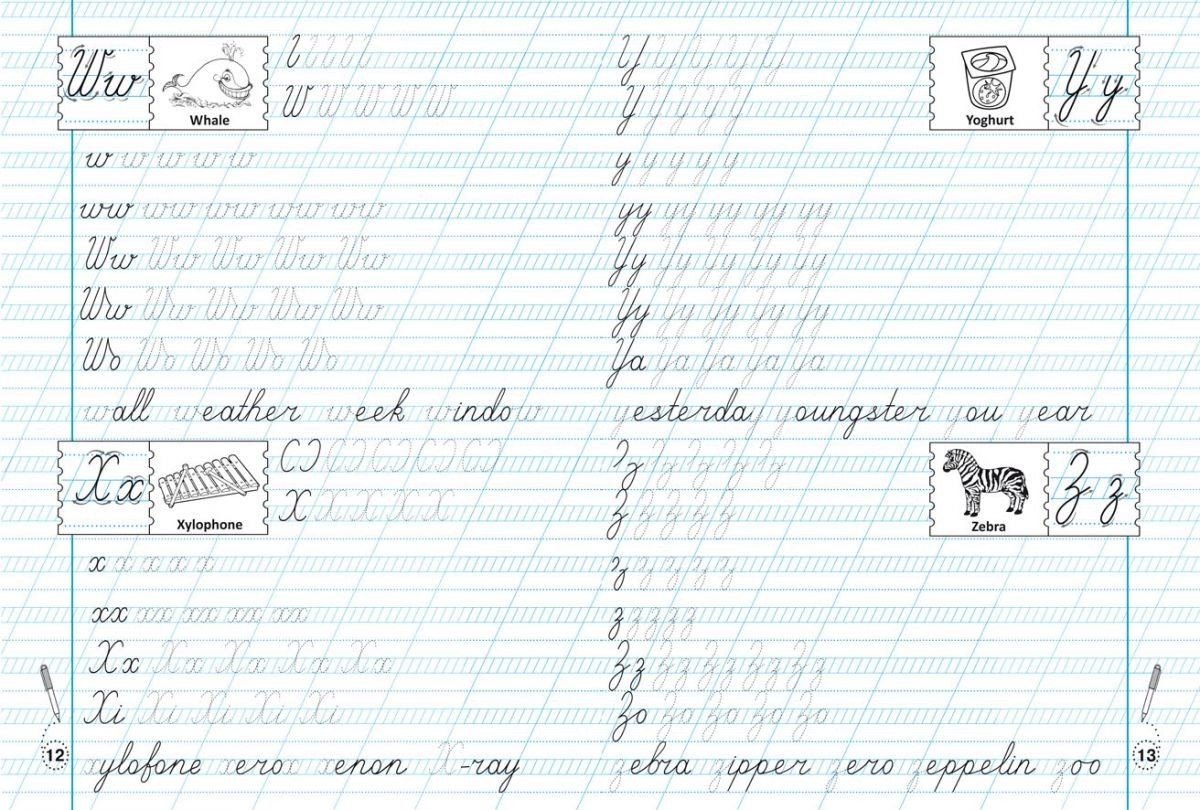 Ww
Whale
W W W W W
w w w w w
ww ww ww ww ww
Ww Ww Ww Ww Ww
Ww Ww Ww Ww Ww
Wo Wo Wo Wo Wo
wall weather week window
Xx
Xylophone
X X X X X
x x x x x
xx xx xx xx xx
Xx Xx Xx Xx Xx
Xi Xi Xi Xi Xi
xylofone xerox xenon X-ray
12
Yoghurt
Yy
Y Y Y Y Y
y y y y y
yy yy yy yy yy
Yy Yy Yy Yy Yy
Yy Yy Yy Yy Yy
Ya Ya Ya Ya Ya
yesterday youngster you year
Zebra
Zz
Z Z Z Z Z
z z z z z
Zz Zz Zz Zz Zz
Zo Zo Zo Zo Zo
zebra zipper zero zeppelin zoo
13